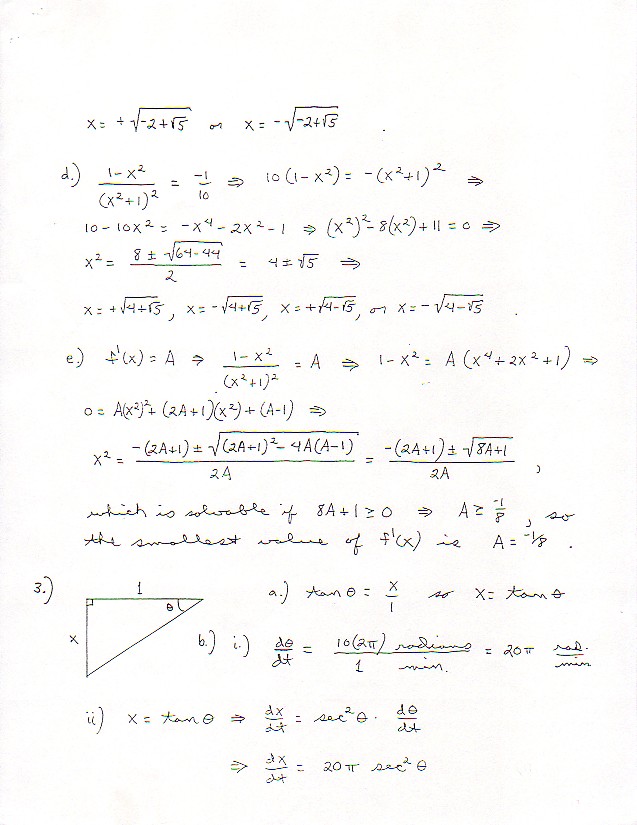 x = +√(-2+√5) or x = -√(-2+√5) .
d.) (1-x²)/(x²+1)² = -1/10 ⇒ 10(1-x²) = -(x²+1)² ⇒
10-10x² = -x⁴-2x²-1 ⇒ (x²)²-8(x²)+11=0 ⇒
x² = (8 ± √(64-44))/2 = 4±√5 ⇒
x = +√(4+√5), x = -√(4+√5), x = +√(4-√5), or x = -√(4-√5) .
e.) f'(x) = A ⇒ (1-x²)/(x²+1)² = A ⇒ 1-x² = A(x⁴+2x²+1) ⇒
0 = A(x²)²+(2A+1)(x²)+(A-1) ⇒
x² = (-(2A+1) ± √((2A+1)²-4A(A-1)))/2A = (-(2A+1) ± √(8A+1))/2A ,
which is solvable if 8A+1 ≥ 0 ⇒ A ≥ -1/8 , so
the smallest value of f'(x) is A = -1/8 .
3.) 1 θ x a.) tan θ = x/1 so x = tan θ
b.) i.) dθ/dt = 10(2π) radians / 1 min. = 20π rad./min
ii) x = tan θ ⇒ dx/dt = sec²θ · dθ/dt
⇒ dx/dt = 20π sec²θ